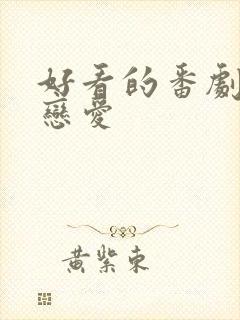 好看的番劇
戀愛
黃紫東